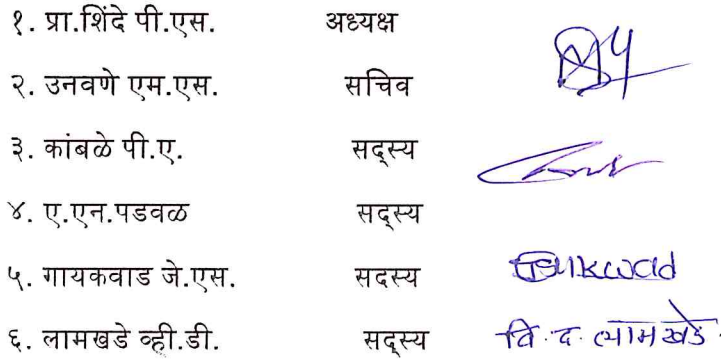 १. प्रा.शिंदे पी.एस. अध्यक्ष
२. उनवणे एम.एस. सचिव
३. कांबळे पी.ए. सदस्य
४. ए.एन.पडवळ सदस्य
५. गायकवाड जे.एस. सदस्य Gaikwad
६. लामखडे व्ही.डी. सदस्य वि. द. लामखडे